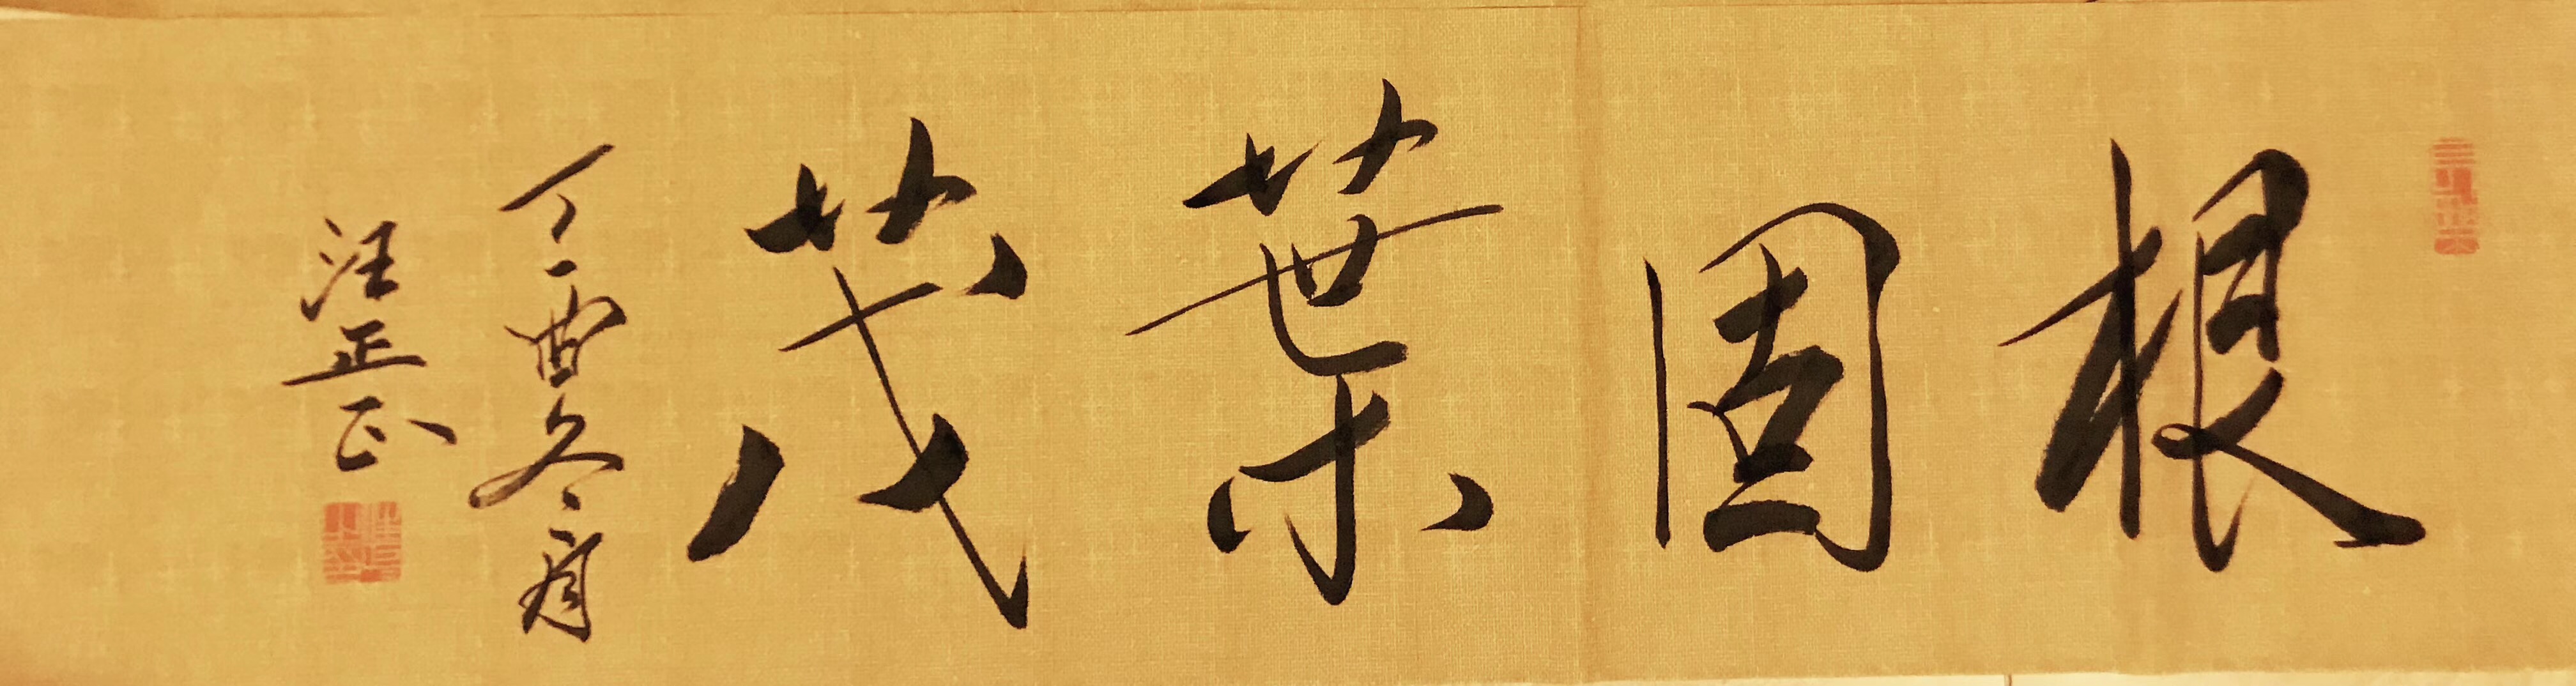 根固葉茂
丁酉冬月
汪正正